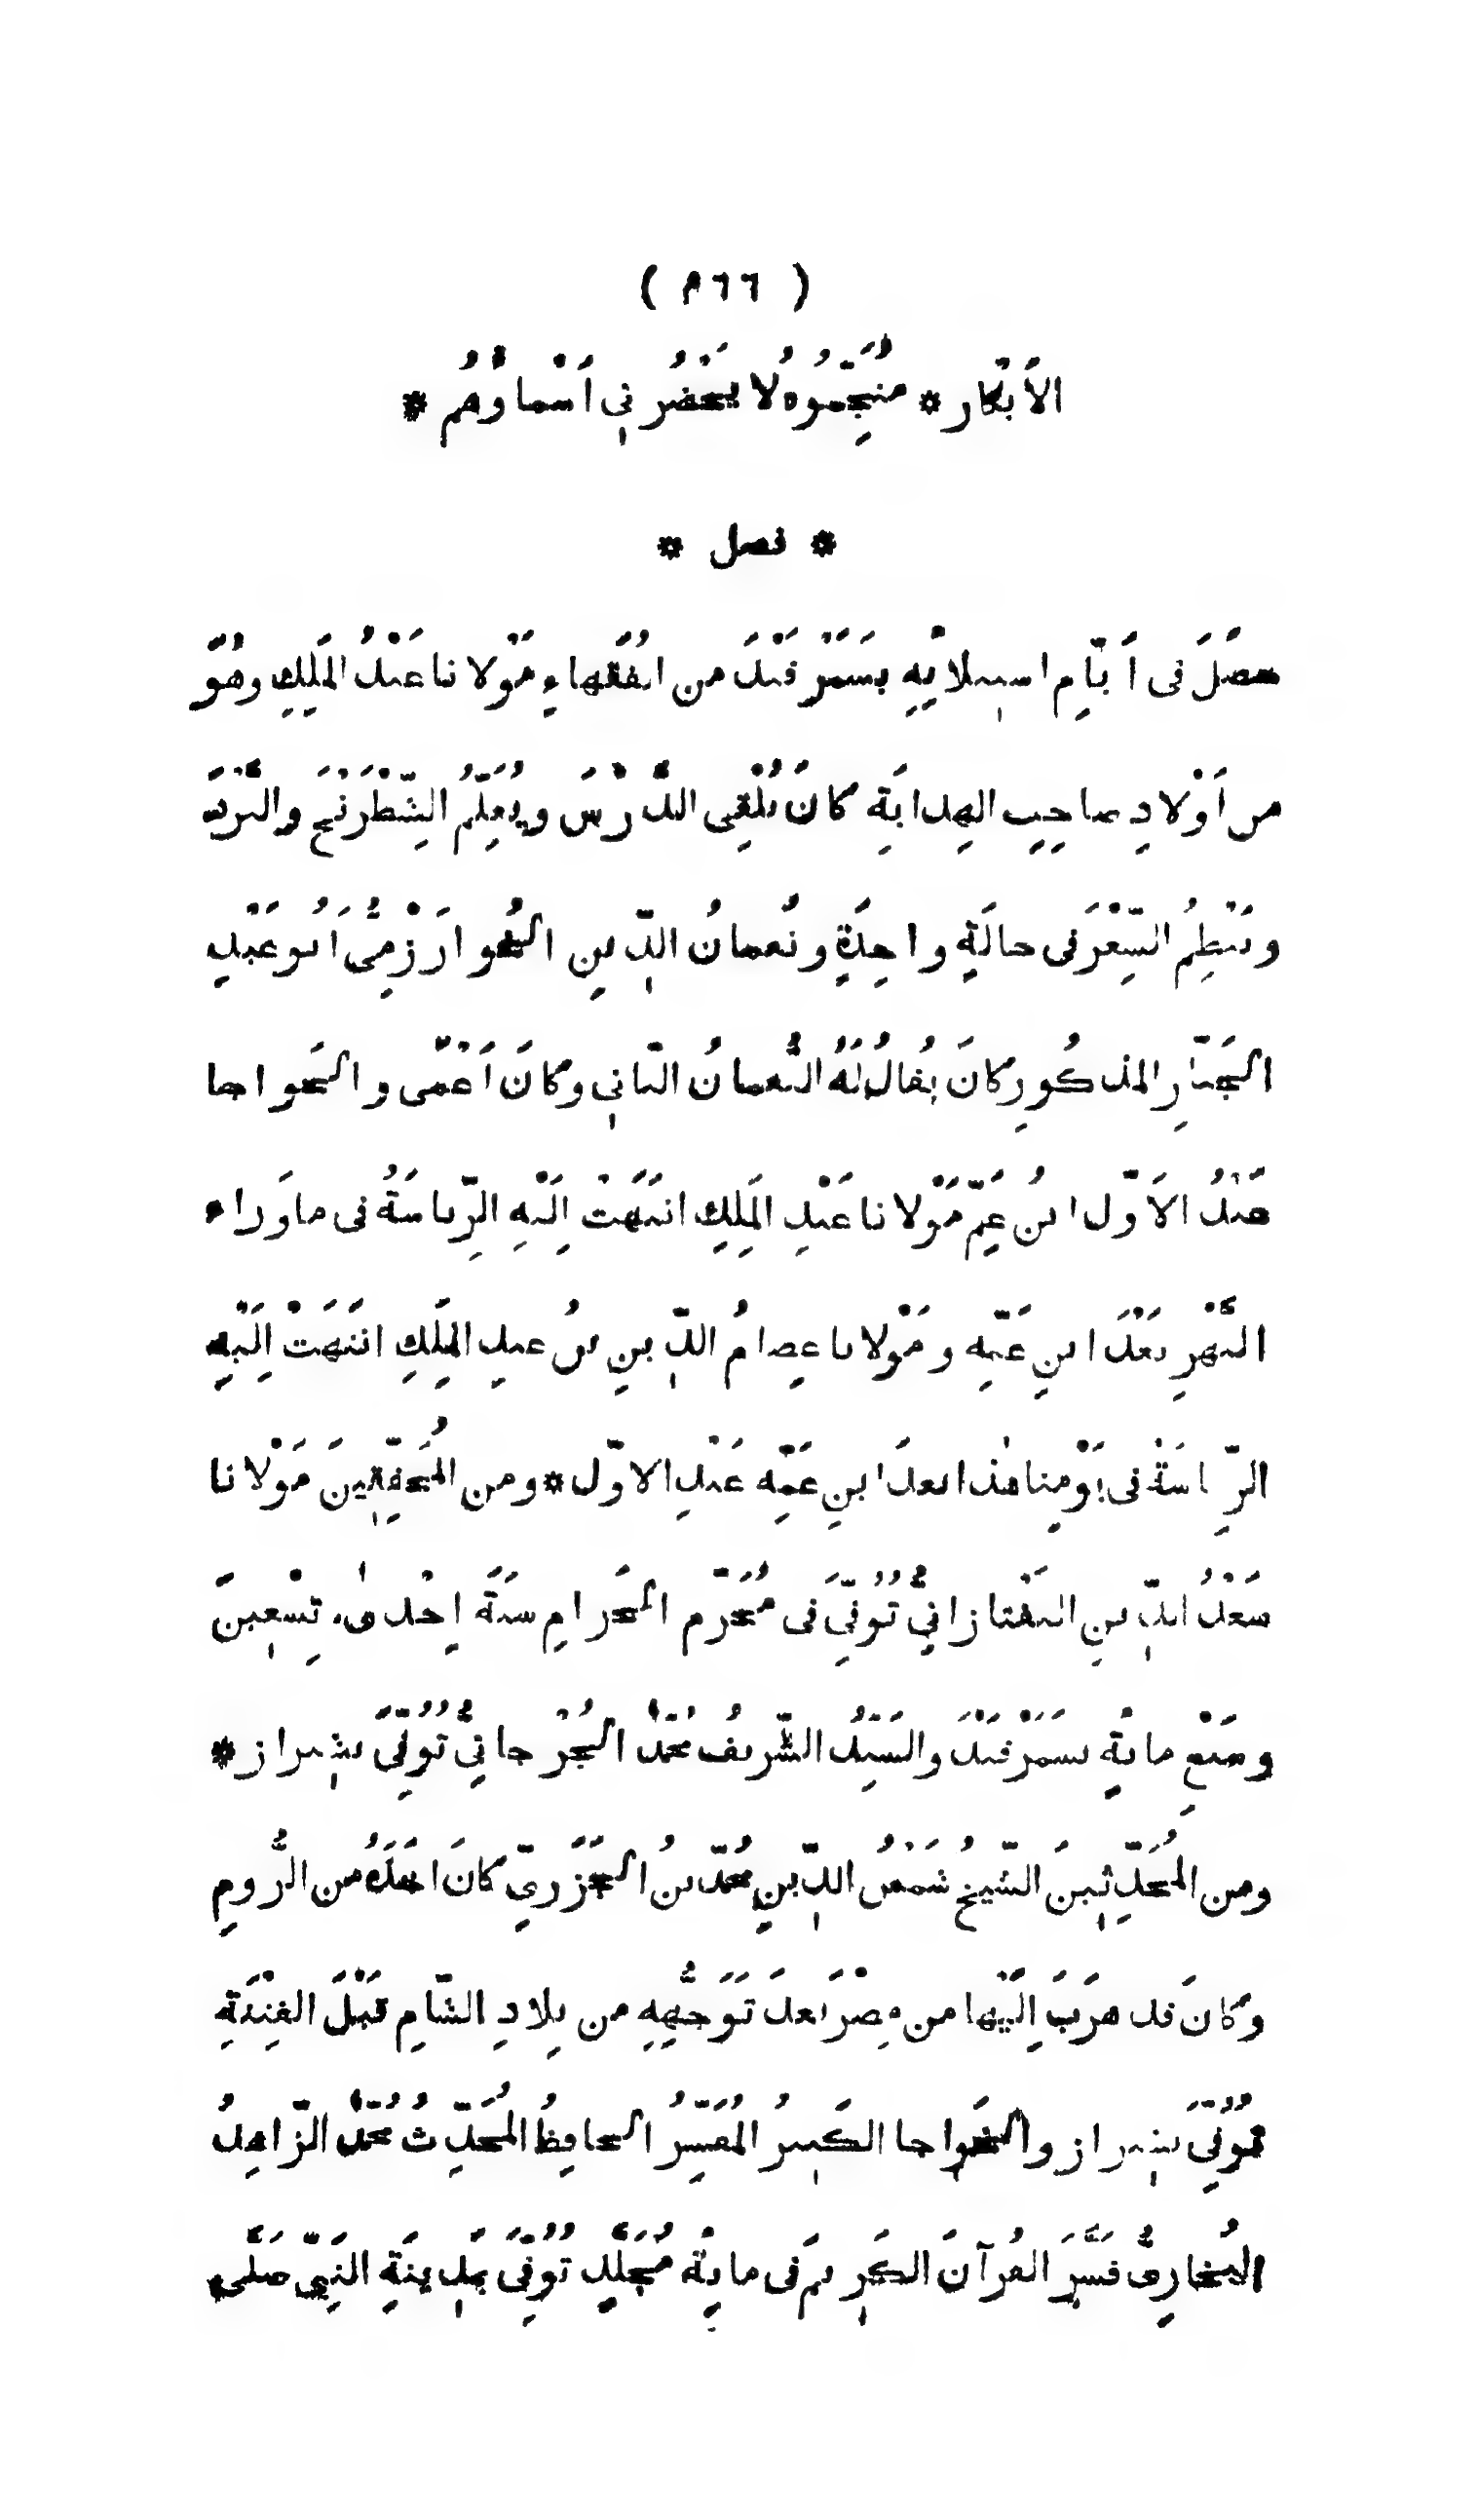 ( ٤٦٦ )
الاَبْكار * مُنَجِّمُوهُ لا يَحْضُرُنِي اَسْماؤُهُم *
* فصل *
حصَلَ فى اَيّامِ استيلائِهِ بِسَمَرْقَنْدَ من الفُقَهاءِ مَوْلانا عَبْدُ المَلِكِ وهُوَ
من اَوْلادِ صاحِبِ الهِدايَةِ كانَ يُلْقِى الدَّرْسَ ويُعَلِّمُ الشِّطْرَنْجَ والنَّرْدَ
ويَنْظِمُ الشِّعْرَ فى حالَةٍ واحِدَةٍ ونُعمانُ الدِّينِ الخُوارَزْمِىُّ اَبُو عَبْدِ
الجَبّارِ المذكُورِ كانَ يُقالُ لَهُ النُّعمانُ الثّانِي وكانَ اَعْمَى والخَواجا
عَبْدُ الاَوّل ابنُ عَمِّ مَوْلانا عَبْدِ المَلِكِ انتَهَتْ اِلَيْهِ الرِّياسَةُ فى ماوَراء
النَّهْرِ بَعْدَ ابنِ عَمِّه ومَوْلانا عِصامُ الدِّينِ بنُ عبدِ المَلِكِ انتَهَتْ اِلَيْهِ
الرِّياسَةُ فى يَوْمِنا هٰذا بعدَ ابنِ عَمِّه عَبْدِ الاوّل * ومن المُحَقِّقِينَ مَوْلانا
سَعْدُ الدِّينِ التَفْتازانِيُّ تُوُفِّىَ فى مُحَرَّم الحَرامِ سنَةَ اِحْدىٰ وتِسْعِينَ
وسَبْعِ مائةٍ بسَمَرْقَنْدَ والسَيِّدُ الشَّرِيفُ مُحَمَّدٌ الجُرْجانِيُّ تُوُفِّىَ بشِيراز *
ومن المُحَدِّثِينَ الشَّيخُ شَمْسُ الدِّينِ مُحَمَّد بنُ الجَزَرِيّ كانَ اخَذَهُ من الرُّومِ
وكانَ قد هرَبَ اِلَيْها من مِصْرَ بَعدَ تَوَجُّهِهِ من بِلادِ الشّامِ قَبْلَ الفِتْنَةِ
تُوُفِّىَ بشِيراز والخَواجا الكَبيرُ المُفَسِّرُ الحافِظُ المُحَدِّثُ مُحَمَّدٌ الزّاهِدُ
البُخارِىُّ فَسَّرَ القُرآنَ الكَرِيمَ فى مائةِ مُجَلَّدٍ تُوُفِّىَ بمَدِينَةِ النَبِىّ صَلَّى